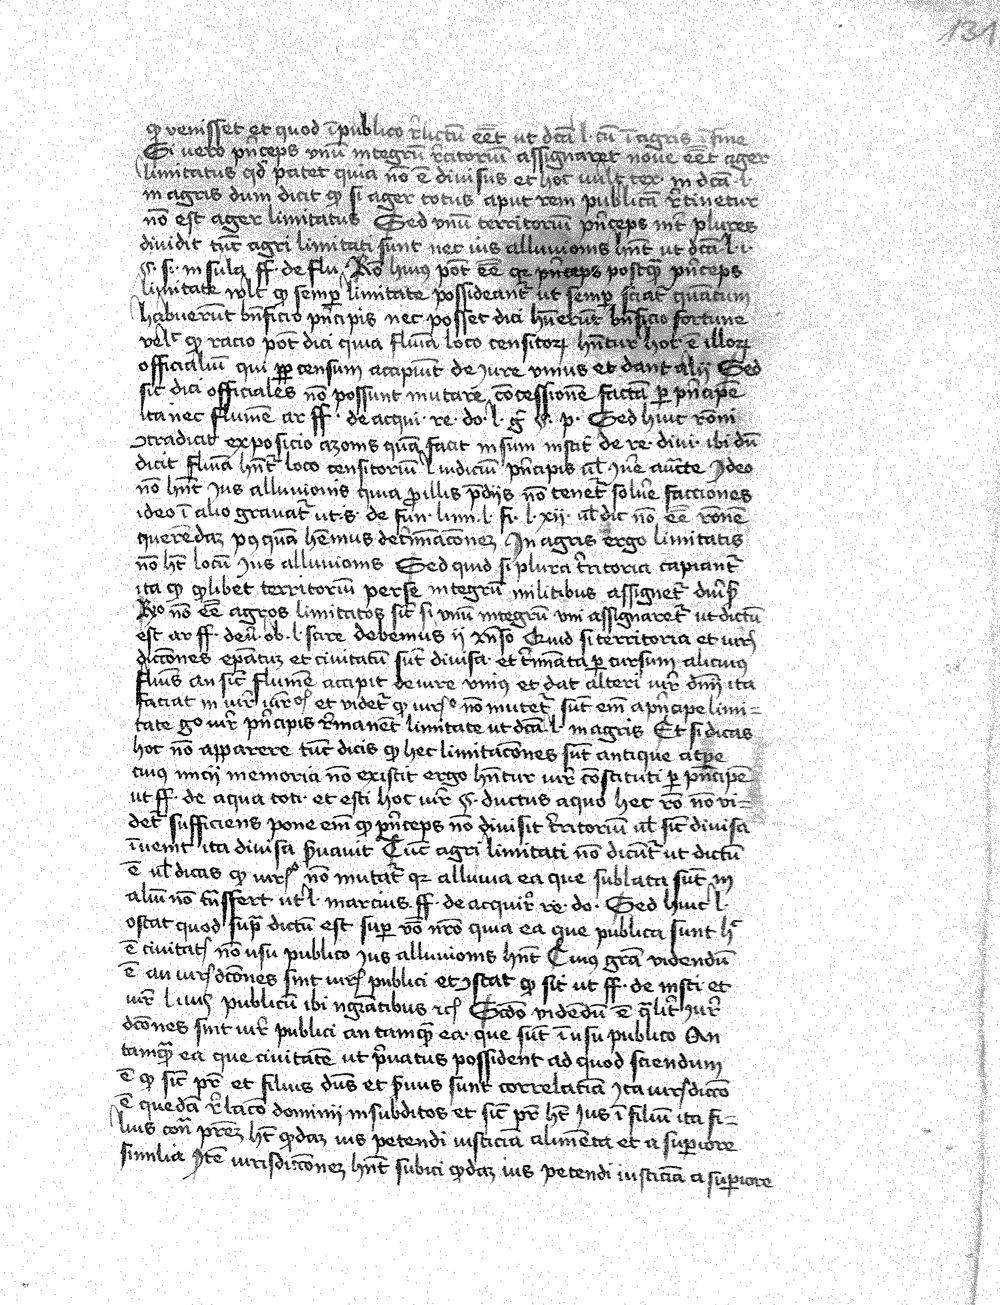 131
qp venisset et quod ī publico r̄lictū eēt ut dcā l. cū ī agris ī fine
Si vero pn̄ceps vnū integrū t̄ritoriū assignaret noue eēt ager
limitatus qd patet quia nō ē divisus et hoc vult tex. in dcā l.
in agris dum dicit qp si ager totus aput rem publicā r̄tinetur
nō est ager limitatus Sed vnū territoriū pn̄ceps int̄ plures
dividit tūc agri limitati sunt nec ius alluuionis hn̄t ut dcā l. i.
§. si. insula ff. de flu. Rō huiꝰ pōt eē qꝛ pn̄ceps postqꝫ pn̄ceps
limitate vl̄t qp semp limitate possideant̄ ut semp sciat̄ quātum
habuerūt bn̄ficio pn̄cipis nec posset dici hn̄erūt bn̄ficio fortune
vel̄ qp racio pōt dici quia flum̄a loco censitoꝝ hn̄tur hoc ē illoꝝ
officialiū qui ꝑꝑ censum accipiūt de iure vnius et dant alij Sed
sic dici officiales nō possunt mutare cōcessionē factā ꝑ pn̄cipē
ita nec flumē ar ff. de acqui. re. do. l. g̊ §. p. Sed huic rōni
ↄtradicit exposicio azonis quā facit in sum insāt de re. divi. ibi dū
dicit flum̄a hn̄t loco censitoriū l iudiciū pn̄cipis ul̄ iur̄e auc̄te Ideo
nō hn̄t ius alluuionis quia ꝓ illis p̄dijs nō tenet̄ solue facciones
ideo ī alio grauat̄ ut. s. de fun. lim. l. fi. l. xii. ul̄ dic nō eē rōnē
querēdaꝫ pꝰquā hēmus det̄miacōneꝫ In agris ergo limitatis
nō hēt locū ius alluuionis Sed quid si plura t̄ritoria capiant̄
ita qp qlibet territoriū per se integrū militibus assignet̄
Rō nō eē agros limitatos sic̄ si vnū integrū vni assignaret̄ ut dictū
est ar ff. de v. ob. l. scire debemus ii Quid si territoria et iur̄s
dicōnes epātuꝫ et civitatū sūt divisa et t̄minata ꝑ cursum alicuiꝰ
fluīs an sic̄ flumē accipit de iure vniꝰ et dat alteri iur̄ dn̄ij ita
faciat in iur̄ iur̄ et videt̄ qp iurs nō mutet̄ sūt em̄ a pn̄cipe limi=
tate gͦ iur̄ pn̄cipis r̄manēt limitate ut dcā l. in agris Et si dicas
hoc nō apparere tūc dicis qp hec limitacōnes sūt antique atqꝫ
cuiꝰ inicij memoria nō existit ergo hn̄tur iur̄ cōstituti ꝑ pn̄cipē
ut ff. de aqua coti. et esti hoc iur̄ §. ductus aque hec rō nō vi=
det̄ sufficiens pone em̄ qp pn̄ceps nō divisit t̄ritoriū ul̄ sic̄ divisa
īvenit ita divisa p̄uauit Tūc agri limitati nō dicūt̄ ut dictū
ē ul̄ dicas qp iurs nō mutat̄ qꝛ alluuia ea que sublata sūt in
aliū nō tn̄sfert ut l. marcius. ff. de acquir̄ re. do. Sed huic l.
ostat quod sup̄ dictū est sup vō n̄ro quia ea que publica sunt hr̄
ē civitat̄ nō usu publico ius alluuionis hn̄t Cuiꝰ grā videndū
ē an iursdcōnes sint iurs publici et ↄstat qp sit ut ff. de insti et
iur̄ l. iuꝫ publicū ibi nḡiatibus ꝛcͣ Scdo vidēdū ē qlit̄ iur̄
dcōnes sint iur̄ publici an tamqꝫ ea que sūt ī usu publico An
tamqꝫ ea que civitatē ut p̄uatus possident ad quod sciendum
ē qp sic̄ pr̄ et filius dn̄s et s̄uus sunt correlatiā ita iursdicō
ē quedā r̄lacō dominij in subditos et sic̄ pr̄ hēt ius ī filiū ita fi=
lius cōn̄ pr̄eꝫ hēt qdaꝫ ius petendi iusticiā alimēta et a supiore
similia Itē iurisdicōneꝫ hn̄t subici qdaꝫ ius petendi iusticiā a supiore